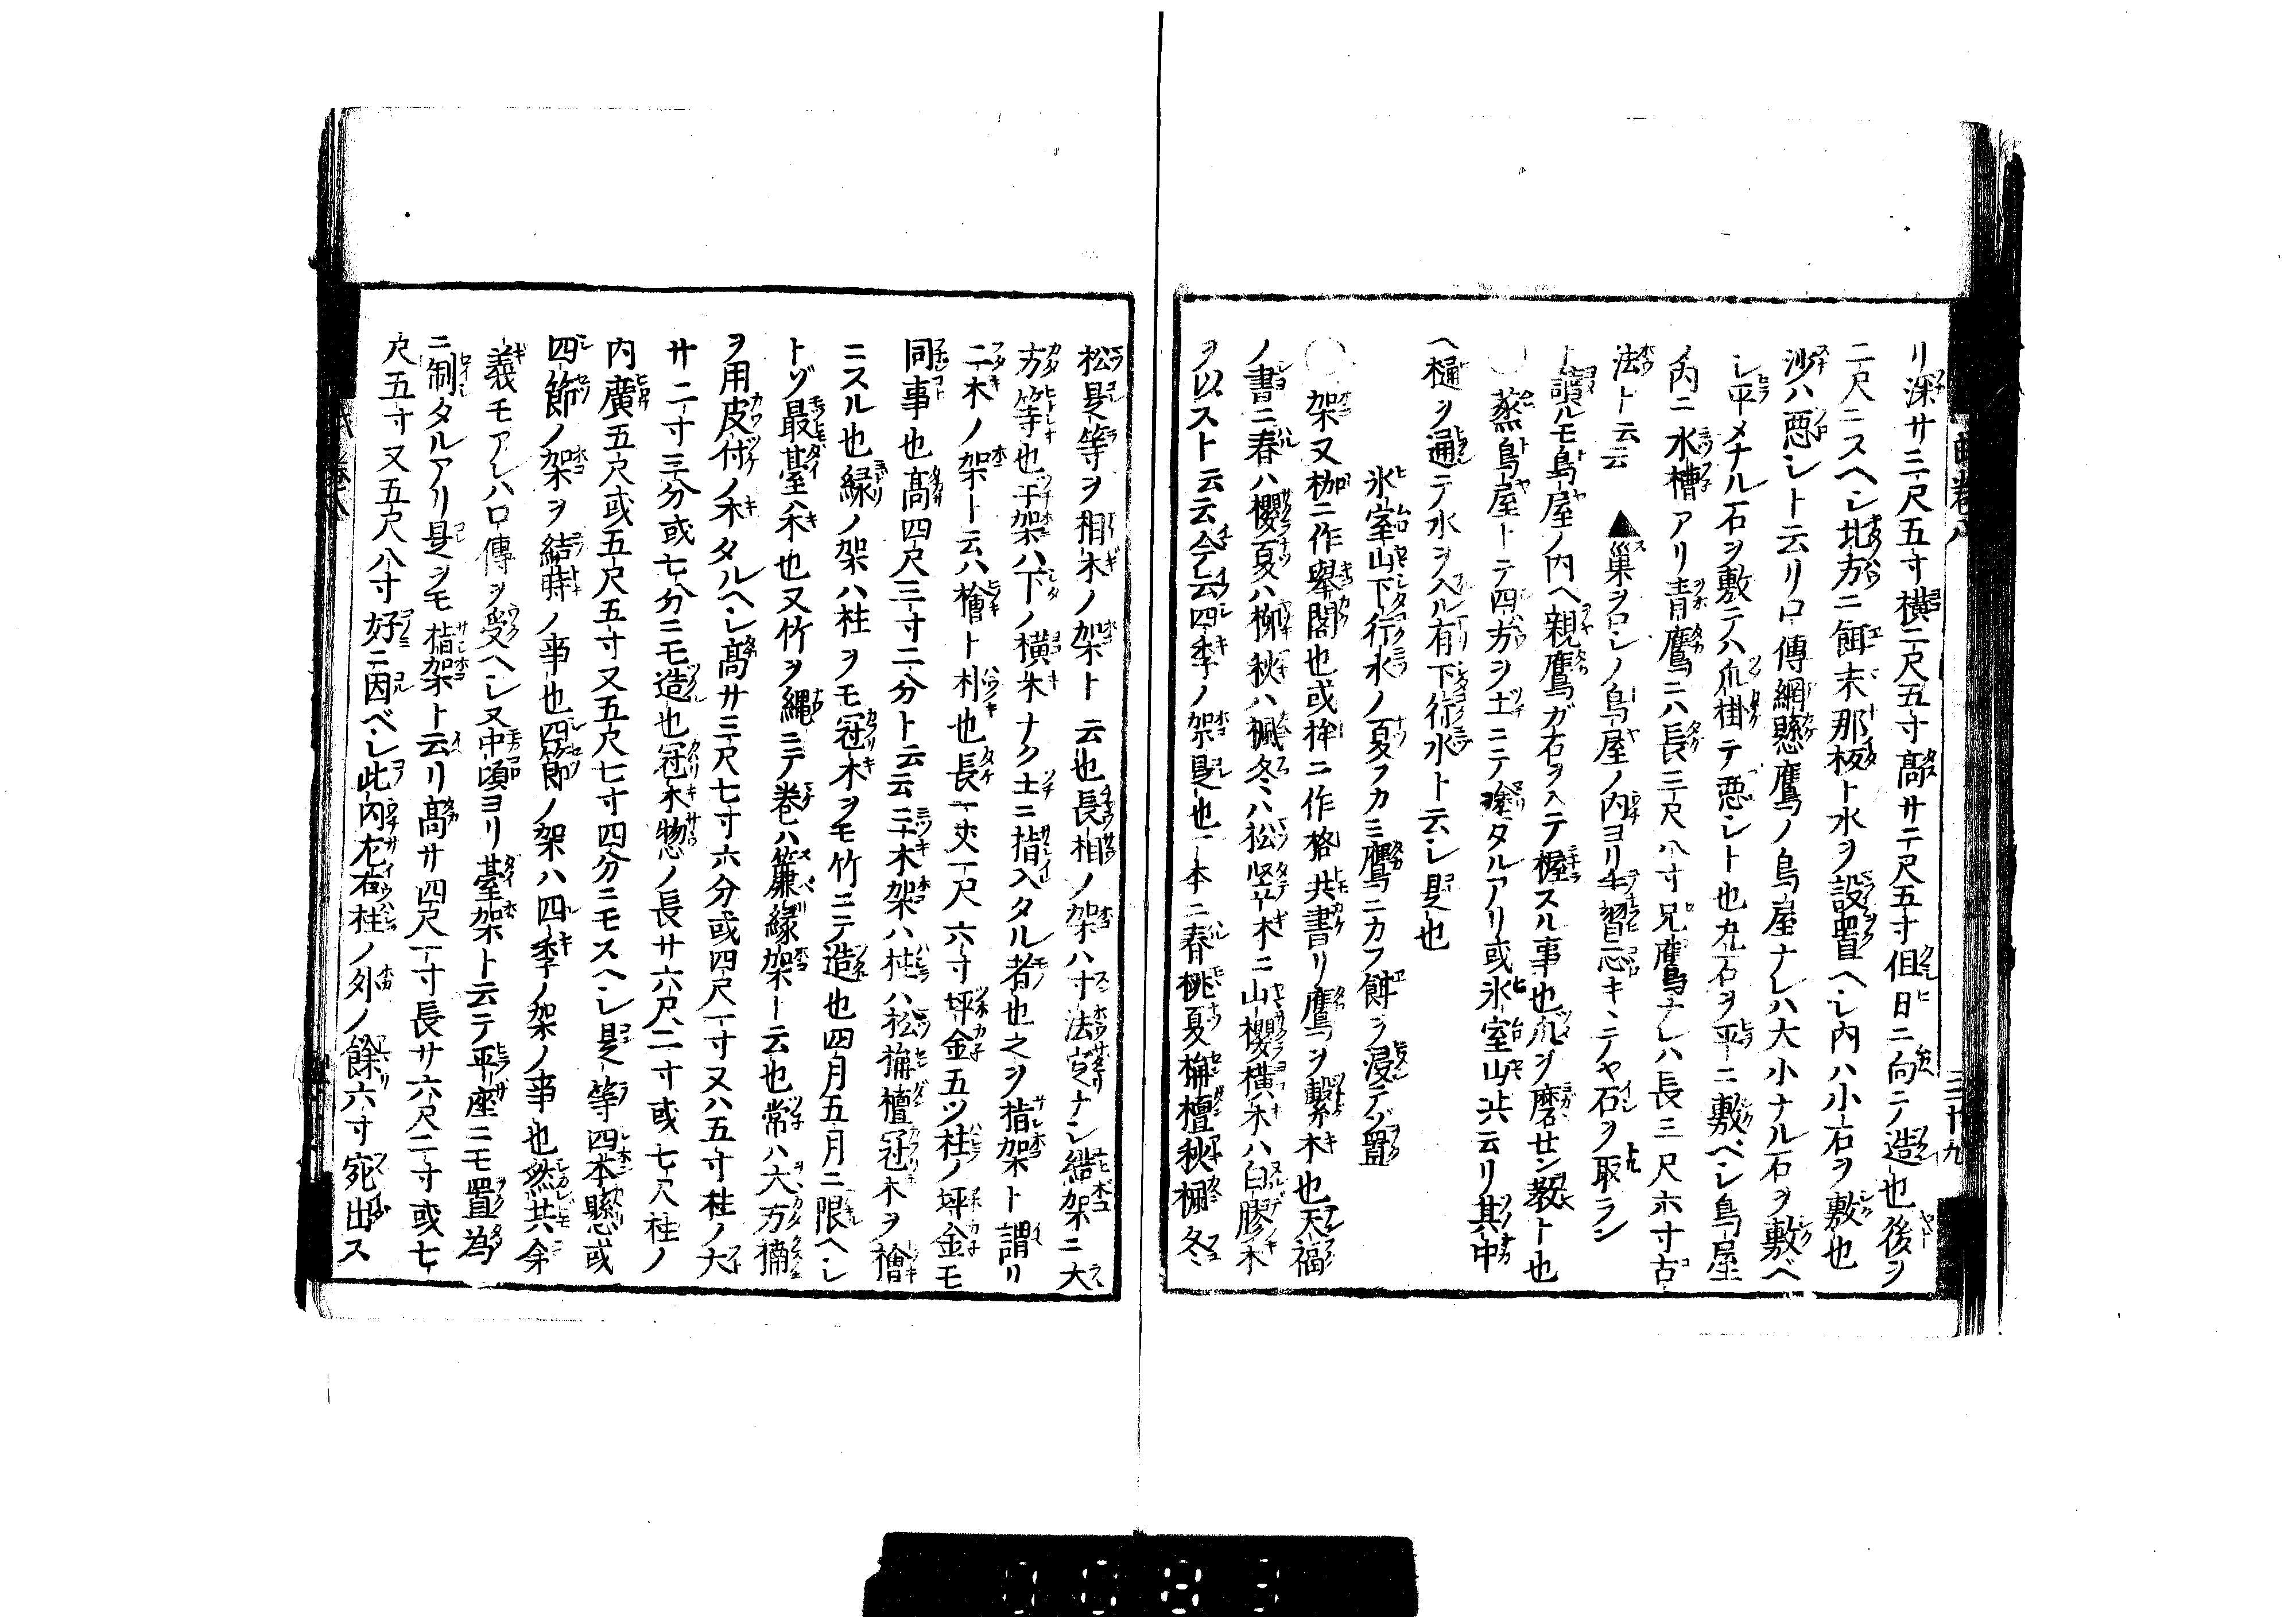 リ深サ三尺五寸横二尺五寸髙サ二尺五寸但日ニ向ニノ造也後ヲ
二尺ニスヘシ北方ニ餌末那板ト水ヲ設置ヘシ内ハ小石ヲ敷也
沙ハ悪シト云リ口傳網懸鷹ノ鳥屋ナレハ大小ナル石ヲ敷ベ
シ平メナル石ヲ敷テハ爪掛テ悪シト也丸石ヲ平ニ敷ベシ鳥屋
ノ内ニ水槽アリ青鷹ニハ長三尺八寸兄鷹ナレハ長三尺六寸古
法ト云云 ▲巣ヲロシノ鳥屋ノ内ヨリ手習忘キヽテヤ石ヲ取ラン
ト讀ルモ鳥屋ノ内ヘ親鷹ガ石ヲ入テ握スル事也爪ヲ磨セン教ト也
○蒸鳥屋トテ四方ヲ土ニテ塗タルアリ或氷室山共云リ其中
ヘ樋ヲ通テ水ヲ入ル有下行水ト云シ是也
氷室山下行水ノ夏フカミ鷹ニカフ餌ヲ浸テゾ置
○架又枷ニ作擧閣也或桙ニ作格共書リ鷹ヲ繋木也天福
ノ書ニ春ハ櫻夏ハ柳秋ハ楓冬ハ松竪木ニ山櫻横木ハ白膠木
ヲ以スト云云今云四季ノ架是也一本ニ春桃夏栴檀秋栅冬
松是等ヲ相木ノ架ト云也長相ノ架ハ寸法定ナシ結架ニ大
方等也干架ハ下ノ横木ナク土ニ指入タル者也之ヲ指架ト謂リ
二木ノ架ト云ハ檜ト朴也長一丈一尺六寸坪金五ツ柱ノ坪金モ
同事也髙四尺三寸二分ト云云三木架ハ柱ハ松栴檀冠木ヲ檜
ニスル也緑ノ架ハ柱ヲモ冠木ヲモ竹ニテ造也四月五月ニ限ヘシ
トゾ最臺ハ木也又竹ヲ縄ニテ巻ハ簾縁架ト云也常ハ大方楠
ヲ用皮付ノ木タルヘシ髙サ三尺七寸六分或四尺一寸又ハ五寸柱ノ大
サ二寸三分或七分ニモ造也冠木惣ノ長サ六尺二寸或七尺柱ノ
内廣五尺或五尺五寸又五尺七寸四分ニモスヘシ是等四本懸或
四節ノ架ヲ結時ノ事也四節ノ架ハ四季ノ架ノ事也然共余
義モアレハ口傳ヲ受ヘシ又中頃ヨリ臺架ト云テ平座ニモ置為
ニ制タルアリ是ヲモ指架ト云リ髙サ四尺一寸長サ六尺二寸或七
尺五寸又五尺八寸好ニ因ベシ此内左右柱ノ外ノ餘六寸宛出ス